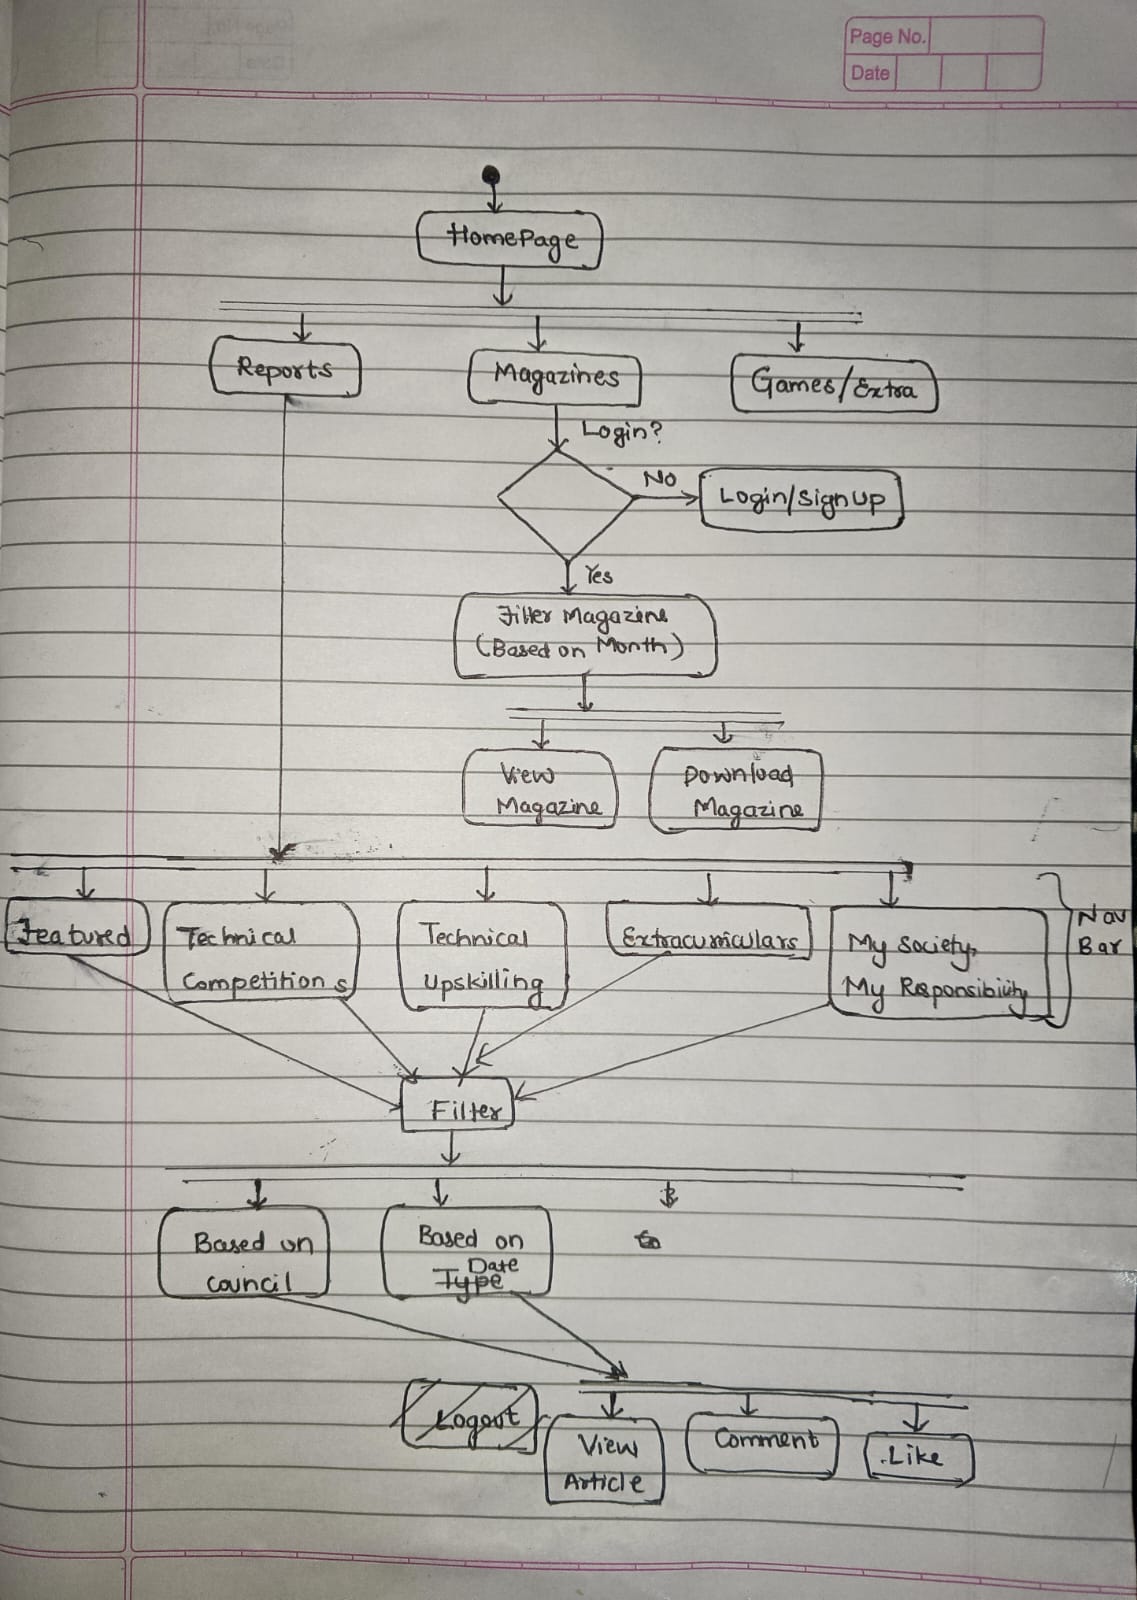 Page No.
Date
HomePage
Reports
Magazines
Games/Extra
Login?
No
Login/SignUp
Yes
Filter Magazine
(Based on Month)
View
Magazine
Download
Magazine
Featured
Technical
Competitions
Technical
Upskilling
Extracurriculars
My Society,
My Responsibility
Nav
Bar
Filter
Based on
Council
Based on
Date
Type
Logout
View
Article
Comment
Like